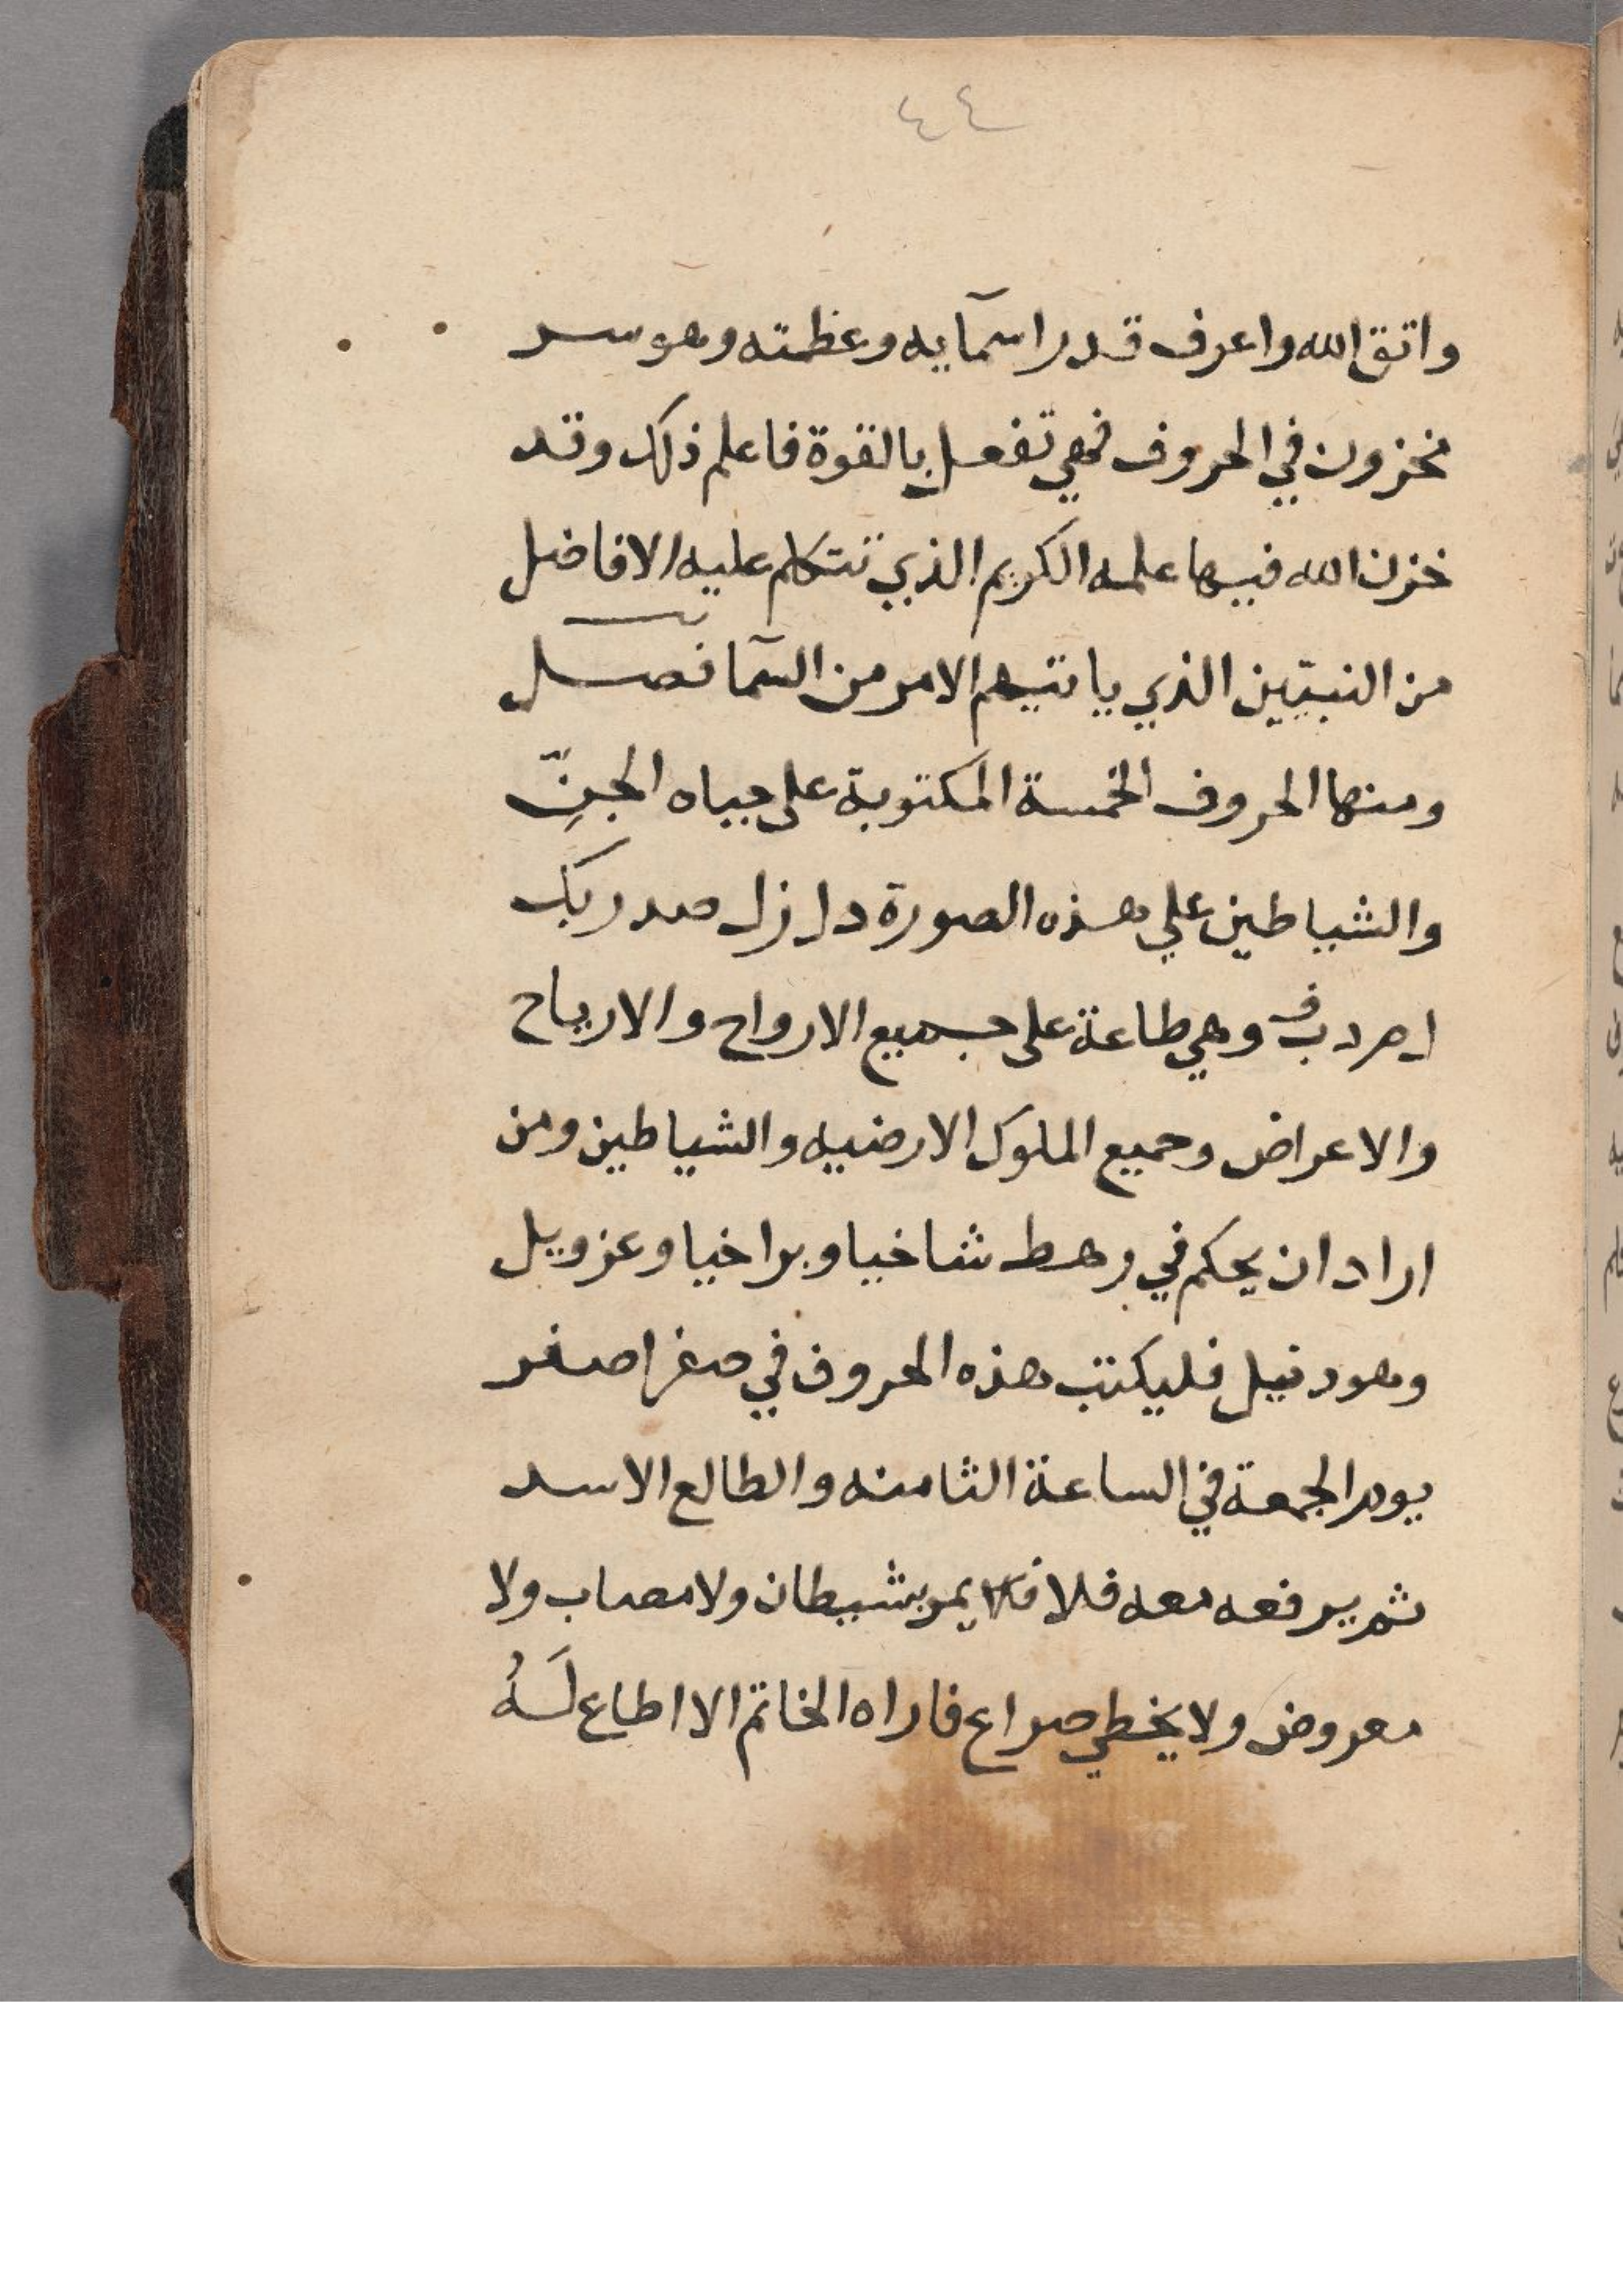 ٤٤
واتق الله واعرف قدر اسمآيه وعظمته وهو سر
مخزون في الحروف فهي تفعل بالقوة فاعلم ذلك وقد
خزن الله فيها علمه الكريم الذي تتكلم عليه الافاضل
من النبيّين الذي ياتيهم الامر من السمآ فصل
ومنها الحروف الخمسة المكتوبة على جباه الجنّ
والشياطين علي هذه الصورة
وهي طاعة على جميع الارواح والارياح
والاعراض وجميع الملوك الارضيه والشياطين ومن
اراد ان يحكم في رهط شاخيا وبراخيا وعزويل
وهودنيل فليكتب هذه الحروف في صفر اصفر
يوم الجمعة في الساعة الثامنه والطالع الاسد
ثم يرفعه معه فلا يمر بشيطان ولا مصاب ولا
معروض ولا يخطي صراع فاراه الخاتم الا اطاع لَهُ